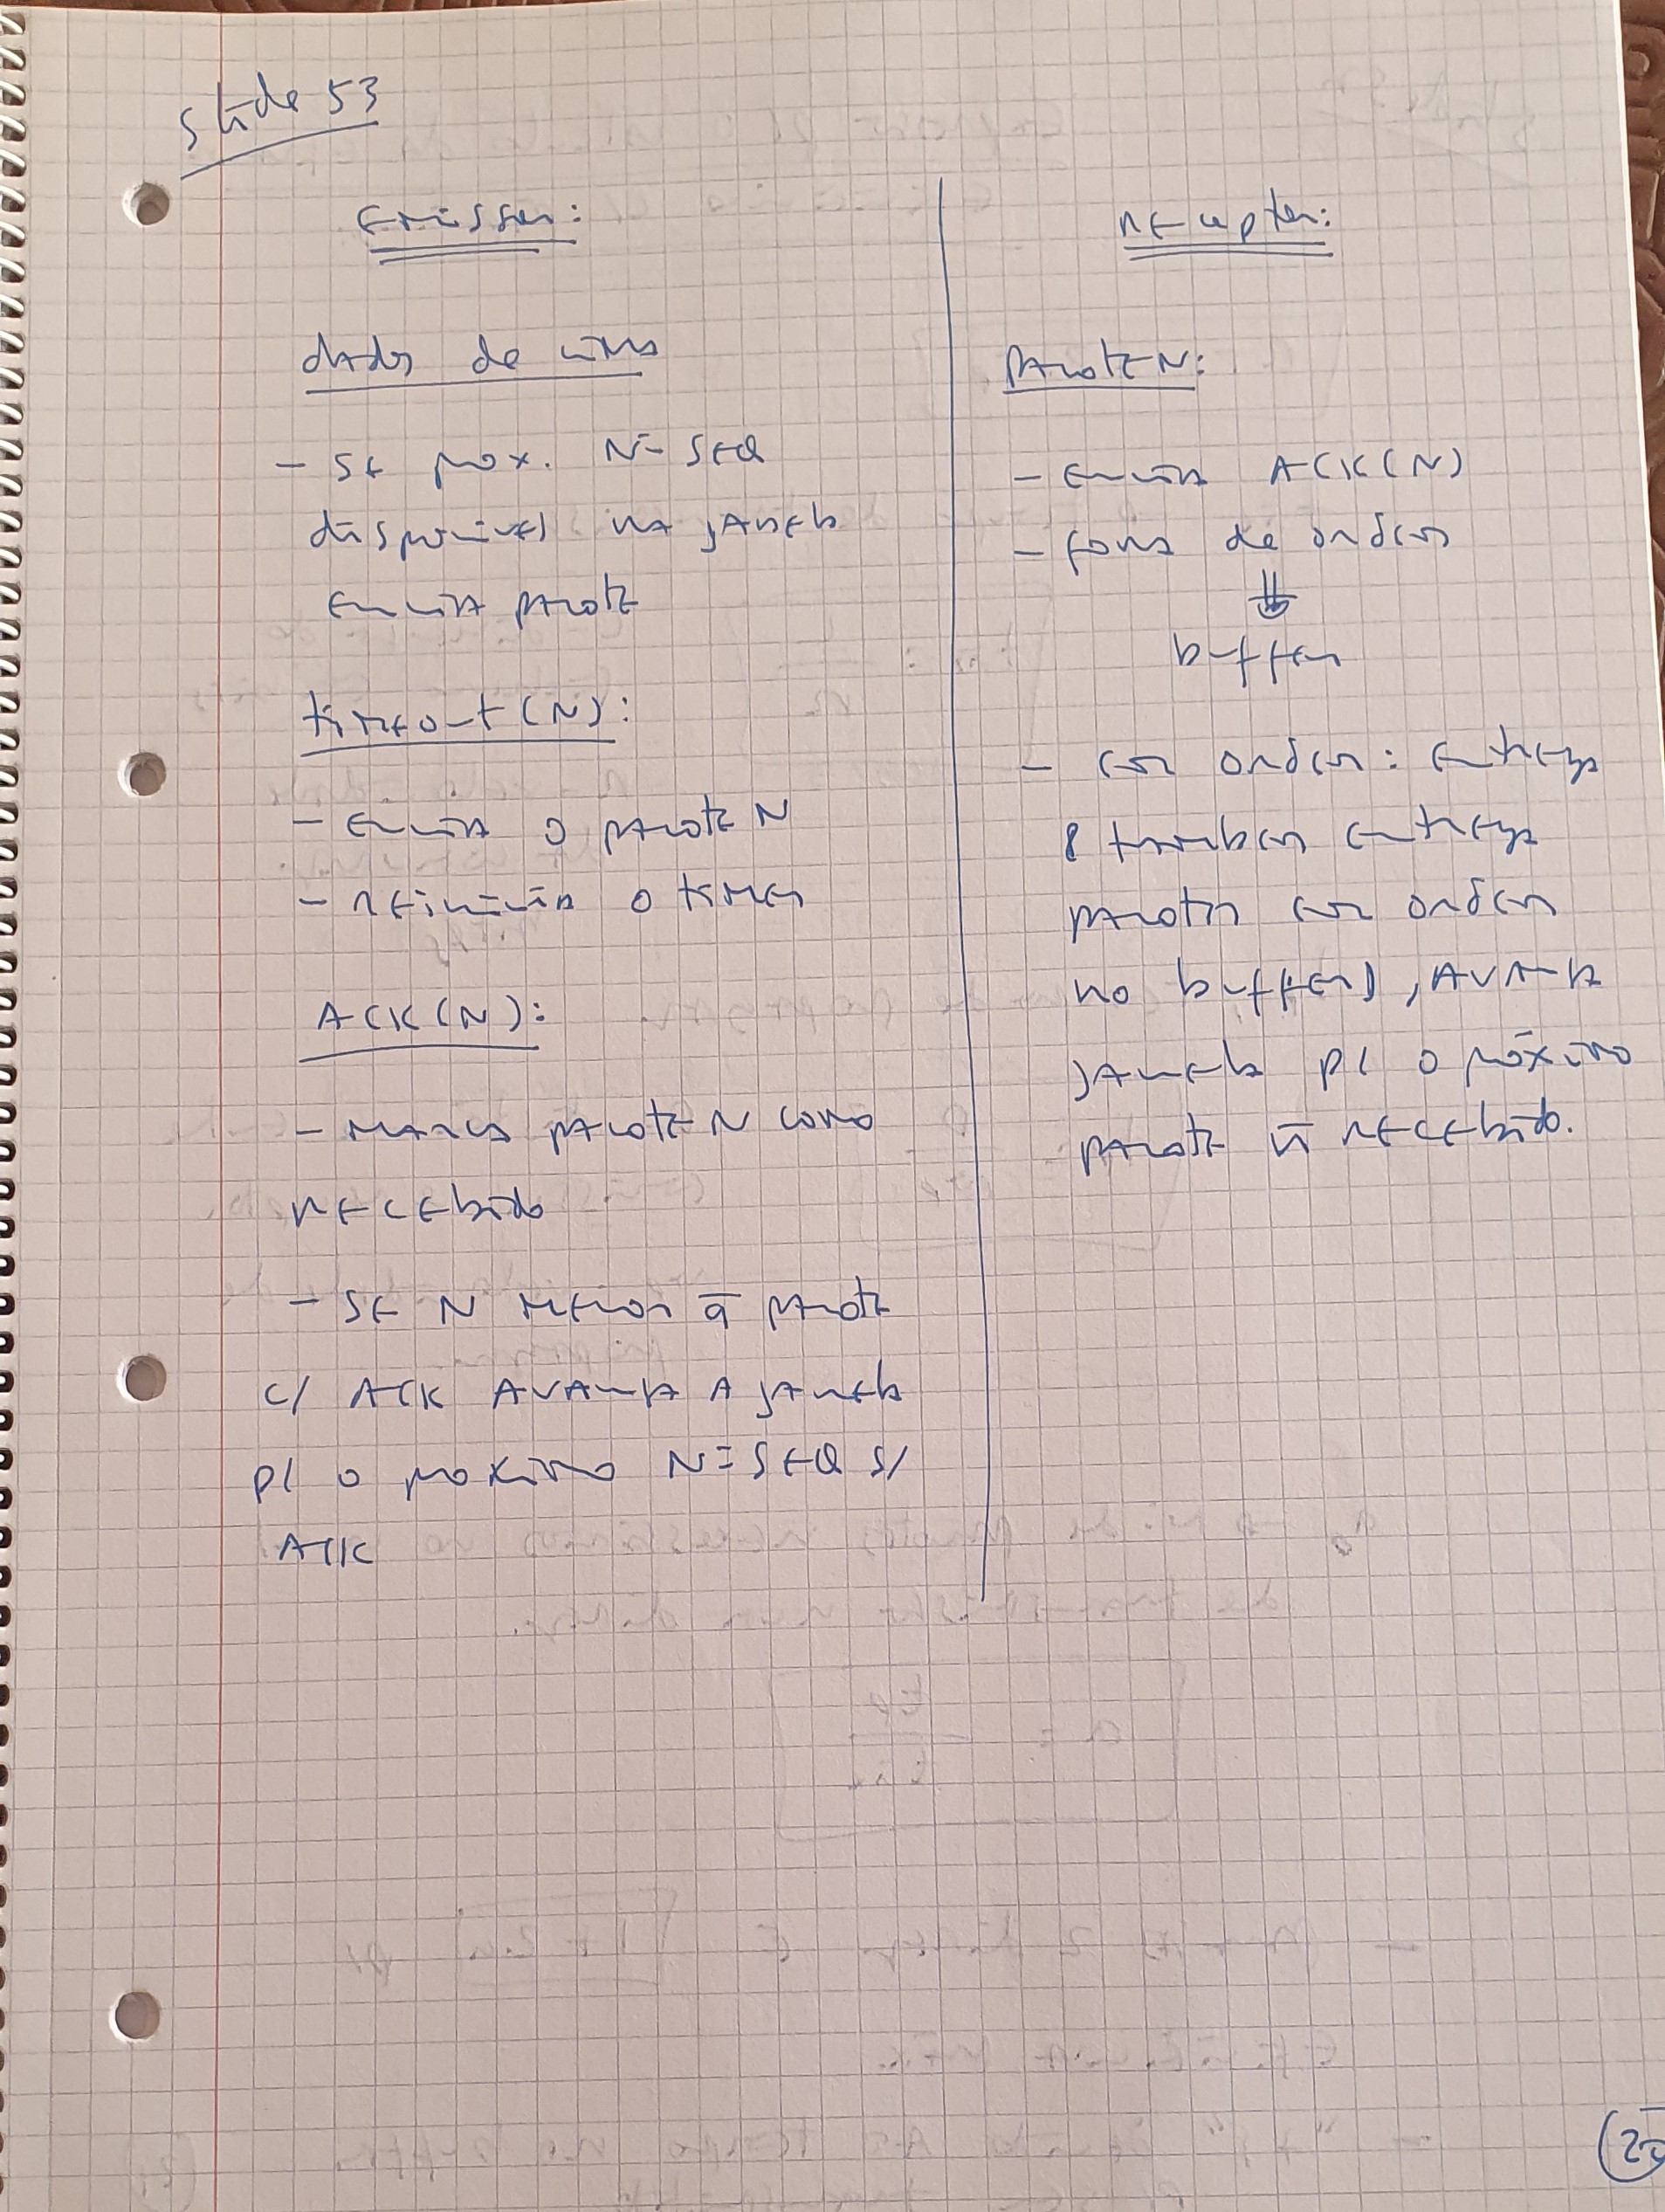 Slide 53
Emissor:
dados de cima
- se prox. Nº SEQ
disponível na janela
envia pacote
timeout(N):
- envia o pacote N
- reinicia o timer
ACK(N):
- marca pacote N como
recebido
- se N menor q̄ pacote
c/ ACK avança a janela
p/ o proximo Nº SEQ s/
ACK
Receptor:
pacote N:
- envia ACK(N)
- fora de ordem
⇓
buffer
- em ordem: entrega
também entrega
pacotes em ordem
no buffer), avança
janela p/ o próximo
pacote ñ recebido.